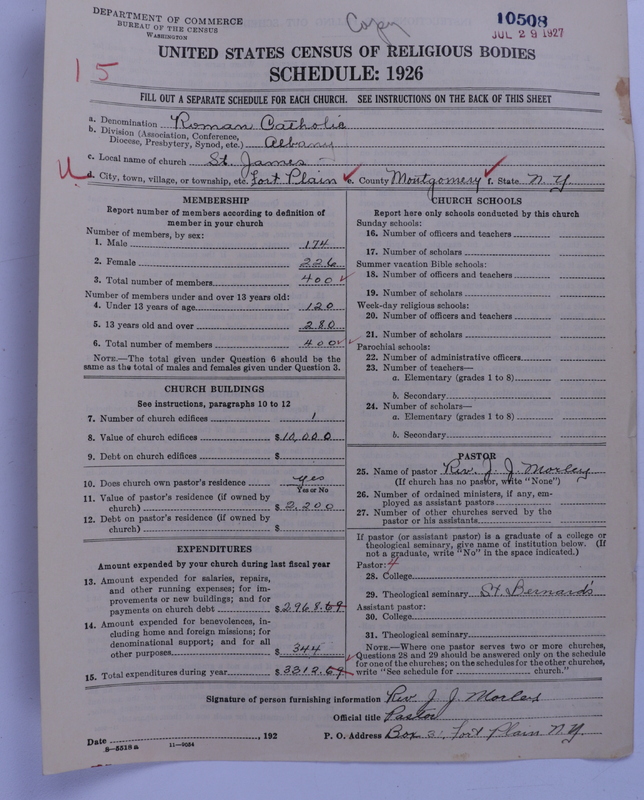 DEPARTMENT OF COMMERCE
BUREAU OF THE CENSUS
WASHINGTON
Copy
10508
JUL 29 1927
15
UNITED STATES CENSUS OF RELIGIOUS BODIES
SCHEDULE: 1926
FILL OUT A SEPARATE SCHEDULE FOR EACH CHURCH. SEE INSTRUCTIONS ON THE BACK OF THIS SHEET
a. Denomination Roman Catholic
b. Division (Association, Conference, Diocese, Presbytery, Synod, etc.) Albany
c. Local name of church St. James
U d. City, town, village, or township, etc. Fort Plain e. County Montgomery f. State N.Y.
MEMBERSHIP
Report number of members according to definition of
member in your church
Number of members, by sex:
1. Male 174
2. Female 226
3. Total number of members 400
Number of members under and over 13 years old:
4. Under 13 years of age 120
5. 13 years old and over 280
6. Total number of members 400
NOTE.—The total given under Question 6 should be the
same as the total of males and females given under Question 3.
CHURCH BUILDINGS
See instructions, paragraphs 10 to 12
7. Number of church edifices 1
8. Value of church edifices $10,000
9. Debt on church edifices $
10. Does church own pastor's residence? yes
Yes or No
11. Value of pastor's residence (if owned by
church) $2,200
12. Debt on pastor's residence (if owned by
church) $
EXPENDITURES
Amount expended by your church during last fiscal year
13. Amount expended for salaries, repairs,
and other running expenses; for im-
provements or new buildings; and for
payments on church debt $2968.69
14. Amount expended for benevolences, in-
cluding home and foreign missions; for
denominational support; and for all
other purposes $344
15. Total expenditures during year $3312.69
CHURCH SCHOOLS
Report here only schools conducted by this church
Sunday schools:
16. Number of officers and teachers
17. Number of scholars
Summer vacation Bible schools:
18. Number of officers and teachers
19. Number of scholars
Week-day religious schools:
20. Number of officers and teachers
21. Number of scholars
Parochial schools:
22. Number of administrative officers
23. Number of teachers—
a. Elementary (grades 1 to 8)
b. Secondary
24. Number of scholars—
a. Elementary (grades 1 to 8)
b. Secondary
PASTOR
25. Name of pastor Rev. J. J. Morley
(If church has no pastor, write "None")
26. Number of ordained ministers, if any, em-
ployed as assistant pastors
27. Number of other churches served by the
pastor or his assistants
If pastor (or assistant pastor) is a graduate of a college or
theological seminary, give name of institution below. (If
not a graduate, write "No" in the space indicated.)
Pastor: 4
28. College
29. Theological seminary St. Bernard's
Assistant pastor:
30. College
31. Theological seminary
NOTE.—Where one pastor serves two or more churches,
Questions 28 and 29 should be answered only on the schedule
for one of the churches; on the schedules for the other churches,
write "See schedule for church."
Signature of person furnishing information Rev. J. J. Morley
Official title Pastor
Date , 192 P. O. Address Box 31 Fort Plain N.Y.
8-5518a 11-9054